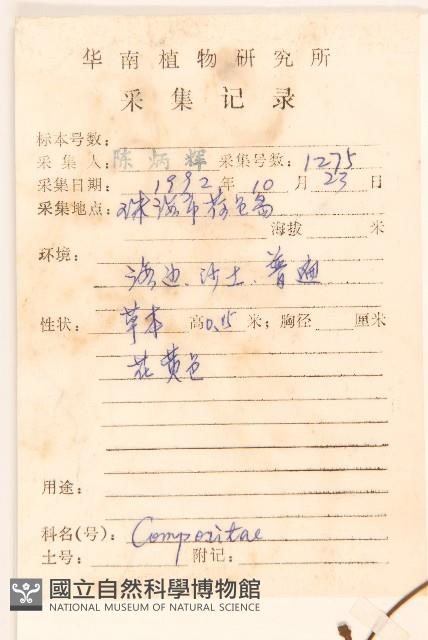 华南植物研究所
采集记录
标本号数：
采集人：陈炳辉 采集号数：1275
采集日期：1992年10月23日
采集地点：珠海市荷包岛
海拔 米
环境：
海边、沙土、普遍
性状：草本 高0.15米；胸径 厘米
花黄色
用途：
科名(号)：Compositae
土号： 附记：
國立自然科學博物館
NATIONAL MUSEUM OF NATURAL SCIENCE